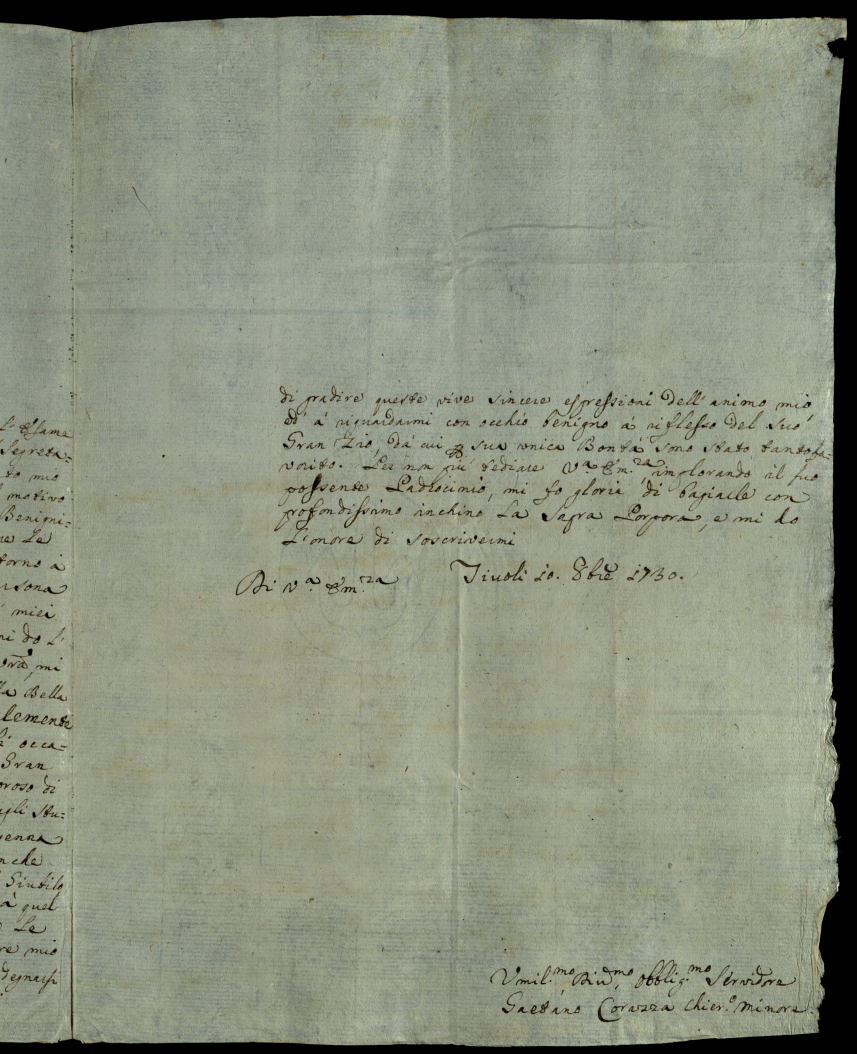 L'Esame
Segreta=
to mio
motivo
Benigni=
ne Le
torno à
rsona
miei
mi do L'
mi
lla Bella
lemente
occa=
Gran
oroso di
agli Stu=
penna
nche
Giubilo
à quel
Le
re mio
degnarsi
di gradire queste vive sincere espressioni dell'animo mio,
ed à riguardarmi con occhio benigno à riflesso del Suo
Gran Zio, dà cui p sua unica Bontà sono stato tantofa=
vorito. Per non più tediare V.a Em.za implorando il suo
possente Padrocinio, mi fo gloria di bagiarle con
profondissimo inchino La Sagra Porpora, e mi ho
L'onore di soscrivermi
Di V.a Em.za Tivoli 10. 8bre 1730.
Umil.mo Div.mo Obblig.mo Servidore
Gaetano Corazza Chier.o minore.